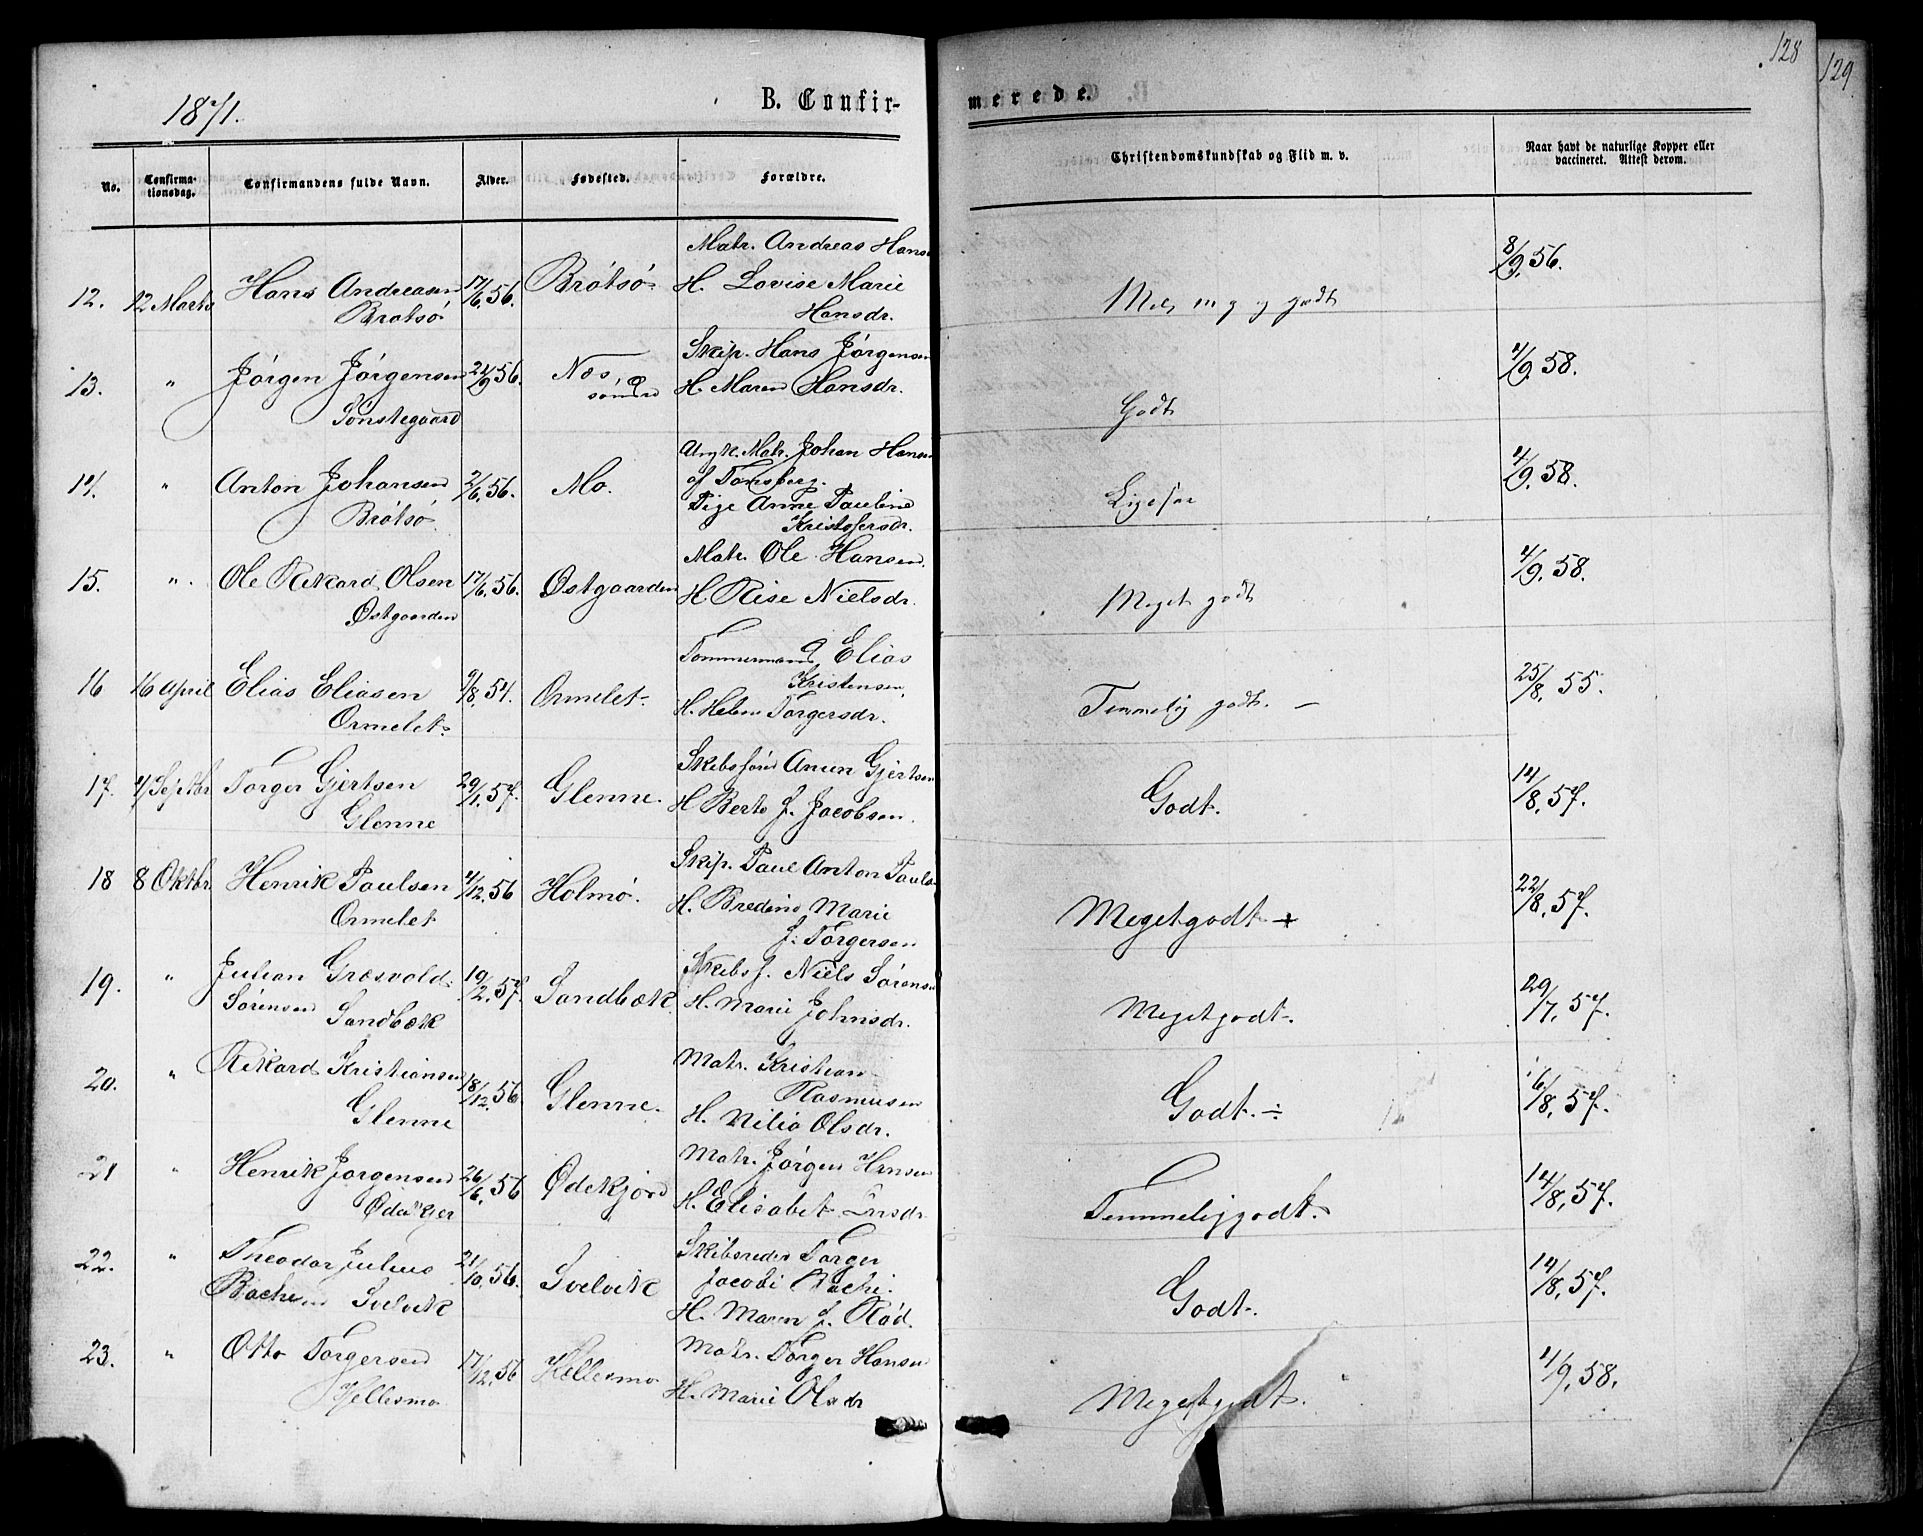 128
129
1871.
B. Confir-
merede.
No.
Confirma-
tionsdag.
Confirmandens fulde Navn.
Alder.
Fødested.
Forældre.
Christendomskundskab og Flid m. v.
Naar havt de naturlige Kopper eller
vaccineret. Attest derom.
12. 12 Marts Hans Andreasen 17/6.56. Brötsö. Matr. Andreas Hans
Brötsö H. Lovise Marie
Hansdr.
8/9.56.
13. " Jörgen Jörgensen 21/9 56. Nes Skip. Hans Jörgensen
Sönstegaard H. Maren Hansdr.
Godt 4/9.58.
14. " Anton Johansen 2/6.56. Mo. Ungk. Matr. Johan Hansen
Brötsö af Tönsberg.
Pige Anne Pauline
Kristofersdr.
4/9.58.
15. " Ole Rikard Olsen 17/6.56. Østgaarden Matr. Ole Hansen
Østgaarden H. Nielsdr.
Meget godt 4/9.58.
16 16 April Elias Eliasen 9/8.54. Ormelet Tömmermand Elias
Ormelet Kristensen,
H. Helene Torgersdr.
Temmelig godt. 25/8.55.
17. 4 Septbr Torger Gjertsen 29/1.57. Glenne. Skibsförer Anun Gjertsen
Glenne H. Berte f. Jacobsen.
Godt. 14/8.57.
18 8 Oktbr. Henrik Paulsen 4/12.56 Holmö. Skip. Paul Anton Pauls
Ormelet H. Bredine Marie
f. Torgersen
Megetgodt + 22/8.57.
19. " Julian Græsvold 19/2.57. Sandbæk Skibsf. Niels Sörens
Sörensen Sandbæk H. Marie Johnsdr.
Megetgodt. 29/7.57.
20. " Rikard Kristiansen 18/12.56 Glenne. Matr. Kristian
Glenne Rasmusen
H. Nilia Olsdr.
Godt. ÷ 16/8.57.
21 " Henrik Jörgensen 26/6.56 Ödekjær Matr. Jörgen Hansen
Ödekjer H. Elisabet
Temmeliggodt. 14/8.57.
22. " Theodor Julius 21/10.56. Svelvik Skibsreder Torger
Bache Svelvik Jacobi Bache.
H. Maren f. Röd.
Godt. 14/8.57.
23. " Otto Torgersen 17/12.56 Kjellesmo Matr. Torger Hansen
Kjellesmo H. Marie Olsdr
Megetgodt. 4/9.58.